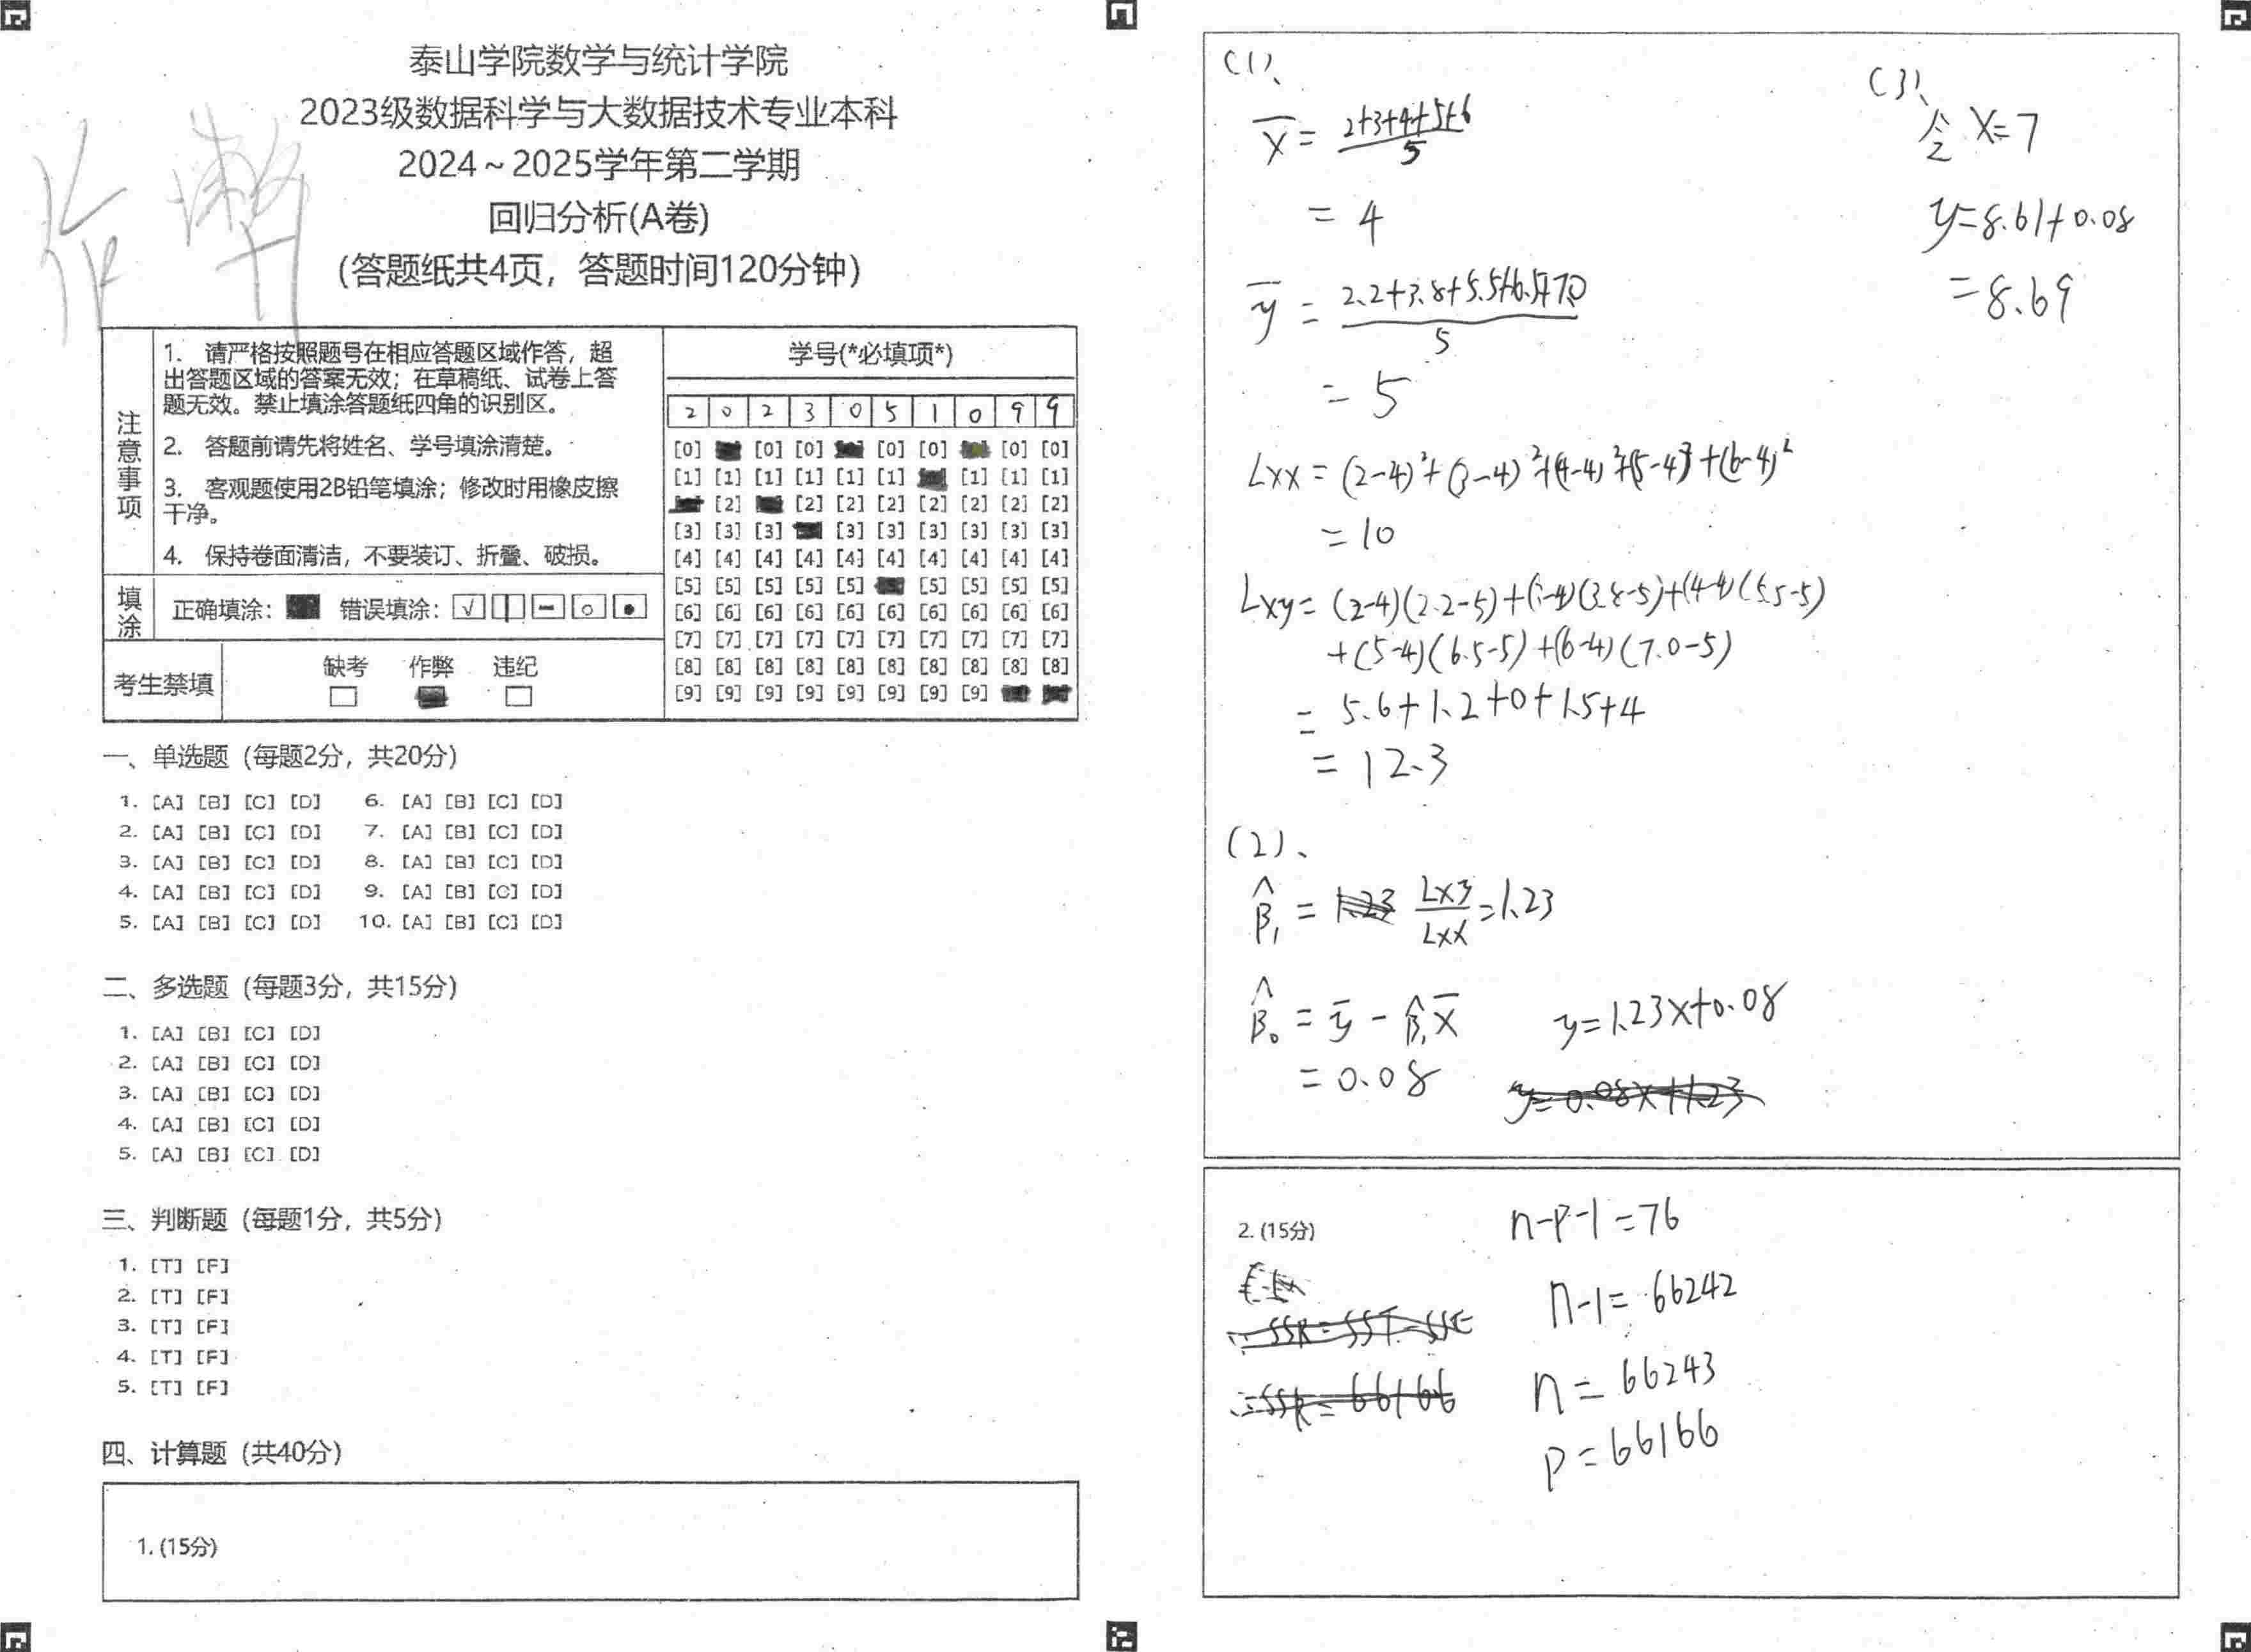 泰山学院数学与统计学院
2023级数据科学与大数据技术专业本科
2024～2025学年第二学期
回归分析(A卷)
(答题纸共4页，答题时间120分钟)
作弊
注意事项
1. 请严格按照题号在相应答题区域作答，超
出答题区域的答案无效；在草稿纸、试卷上答
题无效。禁止填涂答题纸四角的识别区。
2. 答题前请先将姓名、学号填涂清楚。
3. 客观题使用2B铅笔填涂；修改时用橡皮擦
干净。
4. 保持卷面清洁，不要装订、折叠、破损。
填涂
正确填涂： 错误填涂：
考生禁填
缺考 作弊 违纪
学号(*必填项*)
2 0 2 3 0 5 1 0 9 9
[0] [0] [0] [0] [0] [0] [0]
[1] [1] [1] [1] [1] [1] [1] [1] [1]
[2] [2] [2] [2] [2] [2] [2] [2]
[3] [3] [3] [3] [3] [3] [3] [3] [3]
[4] [4] [4] [4] [4] [4] [4] [4] [4] [4]
[5] [5] [5] [5] [5] [5] [5] [5] [5]
[6] [6] [6] [6] [6] [6] [6] [6] [6] [6]
[7] [7] [7] [7] [7] [7] [7] [7] [7] [7]
[8] [8] [8] [8] [8] [8] [8] [8] [8] [8]
[9] [9] [9] [9] [9] [9] [9] [9]
一、单选题 (每题2分，共20分)
1. [A] [B] [C] [D] 6. [A] [B] [C] [D]
2. [A] [B] [C] [D] 7. [A] [B] [C] [D]
3. [A] [B] [C] [D] 8. [A] [B] [C] [D]
4. [A] [B] [C] [D] 9. [A] [B] [C] [D]
5. [A] [B] [C] [D] 10. [A] [B] [C] [D]
二、多选题 (每题3分，共15分)
1. [A] [B] [C] [D]
2. [A] [B] [C] [D]
3. [A] [B] [C] [D]
4. [A] [B] [C] [D]
5. [A] [B] [C] [D]
三、判断题 (每题1分，共5分)
1. [T] [F]
2. [T] [F]
3. [T] [F]
4. [T] [F]
5. [T] [F]
四、计算题 (共40分)
1. (15分)
(1)、
x̄ = (2+3+4+5+6)/5
= 4
ȳ = (2.2+3.8+5.5+6.5+7.0)/5
= 5
Lxx = (2-4)²+(3-4)²+(4-4)²+(5-4)²+(6-4)²
= 10
Lxy = (2-4)(2.2-5)+(3-4)(3.8-5)+(4-4)(5.5-5)
+(5-4)(6.5-5)+(6-4)(7.0-5)
= 5.6+1.2+0+1.5+4
= 12.3
(2)、
β̂₁ = 1.23 Lxy/Lxx = 1.23
β̂₀ = ȳ - β̂₁x̄
= 0.08
y=1.23x+0.08
y=0.08x+1.23
(3)、
令 x=7
y=8.61+0.08
=8.69
2. (15分)
∴SSR=SST-SSE
∴SSR=66166
n-p-1=76
n-1=66242
n=66243
p=66166